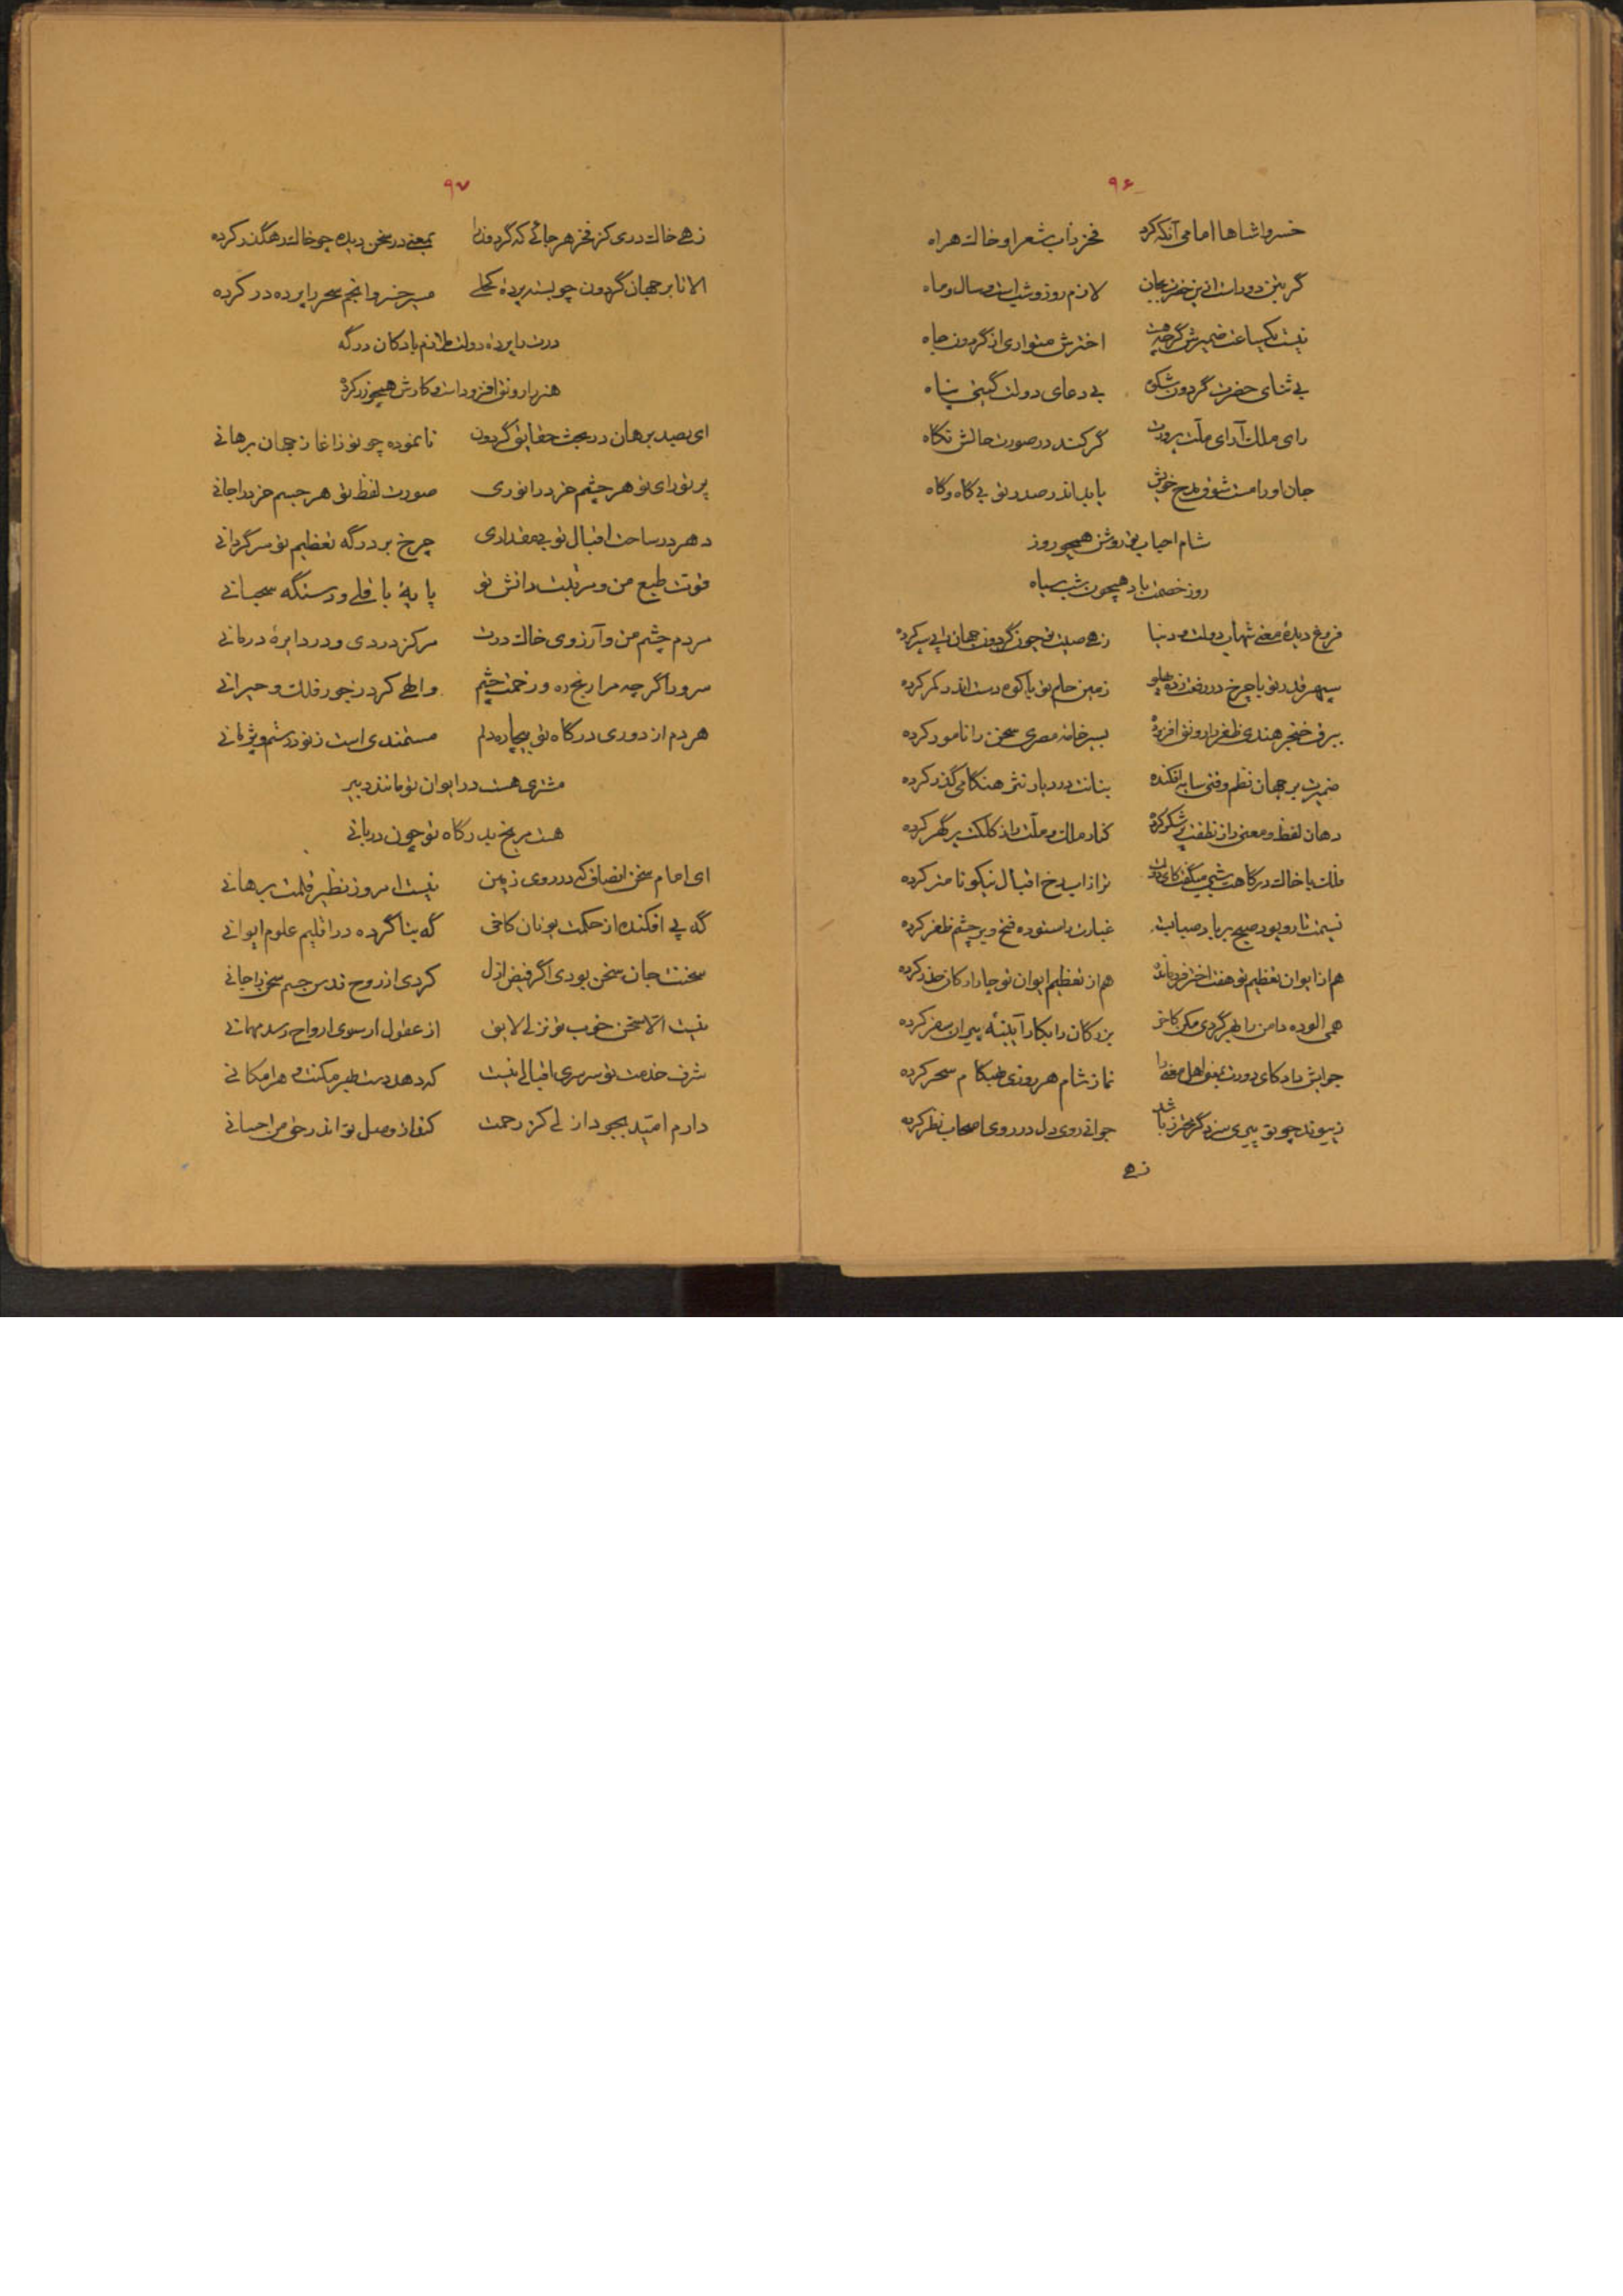 ۹۶
خسروا شاها امامی آنکه کرد فخر ذاب شعر او خاک هراه
گر بتن دور است از این حضرت بجان لازم روز و شب است و سال و ماه
نیست یکساعت ضمیرش گرچه هست اخترش متواری از گردون جاه
بی ثنای حضرت گردون شکوه بی دعای دولت گیتی پناه
رای ملک آرای ملّت پرورت گر کند در صورت حالش نگاه
جان او را مست شوق مدح خویش یابد اندر صدر تو بی گاه و گاه
شام احباب تو روشن همچو روز
روز خصمت باد همچون شب سیاه
فروغ دیدهٔ معنی شهاب دولت و دنیا زهی صیت تو چون گردون جهان را پی سپر کرده
سپهر قدر تو با چرخ در رفعت زده پهلو زمین حلم تو با کوه دست اندر کمر کرده
ببرق خنجر هندی ظفر را رونق افزوده بسر خامهٔ مصری سخن را نامور کرده
ضمیرت بر جهان نظم وقتی سایه افکنده بنانت در دیار نثر هنگامی گذر کرده
دهان لفظ و معنی را ز نطقت پر شکر کرده کنار ملک و ملّت را ز کلکت پر گهر کرده
ملک با خاک درگاهت شبی میگفت کای ترا ز اسب رخ اقبال نیکو نامتر کرده
نسیمت تار و پود صبح بر باد صبا بسته غبارت را ستوده فتح و بر چشم ظفر کرده
هم از ایوان تعظیم تو هفت اختر فرو مانده هم از تعظیم ایوان تو چار ارکان حذر کرده
همی الوده دامن را بهر گردی مکن کاخر بزرگان را بکار آیینهٔ پیران سفر کرده
جوابش داد کای دورت بتو اهل معنی را نماز شام هر روزی هنگام سحر کرده
ز پیوند چو تو پیری سزد گر مفخر ز باشد جوانی روی دل در روی اصحاب نظر کرده
زهی
۹۷
زهی خاک دری کز فخر هر جائی که گردون را بمعنی در سخن دیده چو خاک رهگذر کرده
الا تا بر جهان گردون چو بندد پردهٔ کحلی مسیر خسرو انجم سحر را پرده در کرده
درت را پرده دولت ملازم باد کان درگه
هنر را رونق افزود است و کارش همچو زر کرده
ای بصد برهان در بحث حقایق گردون نانموده چو تو ز آغاز جهان برهانی
پرتو رای تو هر چشم خرد را نوری صورت لفظ تو هر جسم خرد را جانی
دهر در ساحت اقبال تو بی مقداری چرخ بر درگه تعظیم تو سرگردانی
قوت طبع من و مرتبت دانش تو پایهٔ باقلی و دستگه سحبانی
مردم چشم من و آرزوی خاک درت مرکز دردی و در دایرهٔ درمانی
سرورا گرچه مرا رنج ره و زحمت چشم والهی کرد ز جور فلک و حیرانی
هر دم از دوری درگاه تو بیچاره دلم مستمندی است ز نو در ستم و پژمانی
مشتری هست در ایوان تو مانند دبیر
هست مریخ بدرگاه تو چون دربانی
ای امام سخن انصاف که در روی زمین نیست امروز نظیر قلمت برهانی
گه پی افکنده از حکمت یونان کاخی گه بنا کرده در اقلیم علوم ایوانی
سخنت جان سخن بودی اگر فیض ازل کردی از روح قدس جسم سخن را جانی
نیست الّا سخن خوب تو نزلی لایق از عقول ار سوی ارواح رسد مهمانی
شرف خدمت تو سرسری اقبالی نیست که دهد دست بهر مکنت و هر امکانی
دارم امّید بجود ازلی کز رحمت کند از وصل تو اندر حق من احسانی